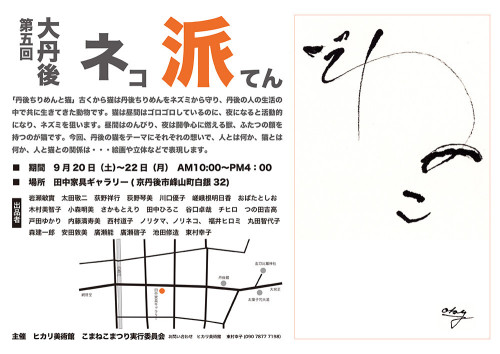 第五回
大丹後
ネコ派てん
「丹後ちりめんと猫」古くから猫は丹後ちりめんをネズミから守り、丹後の人の生活の
中で共に生きてきた動物です。猫は昼間はゴロゴロしているのに、夜になると活動的
になり、ネズミを狙います。昼間はのんびり、夜は闘争心に燃える獣、ふたつの顔を
持つのが猫です。今回、丹後の猫をテーマにそれぞれの想いで、人とは何か、猫とは
何か、人と猫との関係は・・・絵画や立体などで表現します。
■ 期間 9月20日(土)〜22日(月) AM10:00〜PM4:00
■ 場所 田中家具ギャラリー(京丹後市峰山町白銀32)
出品者
岩瀬敏實 太田敬二 荻野祥行 荻野琴美 川口優子 嵯峨根明日香 おばたとしお
木村美智子 小森明美 さかもとえり 田中ひろこ 谷口卓哉 チヒロ つの田吉高
戸田ゆかり 内藤濤寿美 西村道子 ノリタマ、ノリネコ、 福井ヒロミ 丸田智代子
森建一郎 安田敦美 廣瀬能 廣瀬啓子 池田修造 東村幸子
主催 ヒカリ美術館 こまねこまつり実行委員会 お問い合わせ ヒカリ美術館 東村幸子(090 7877 7198)